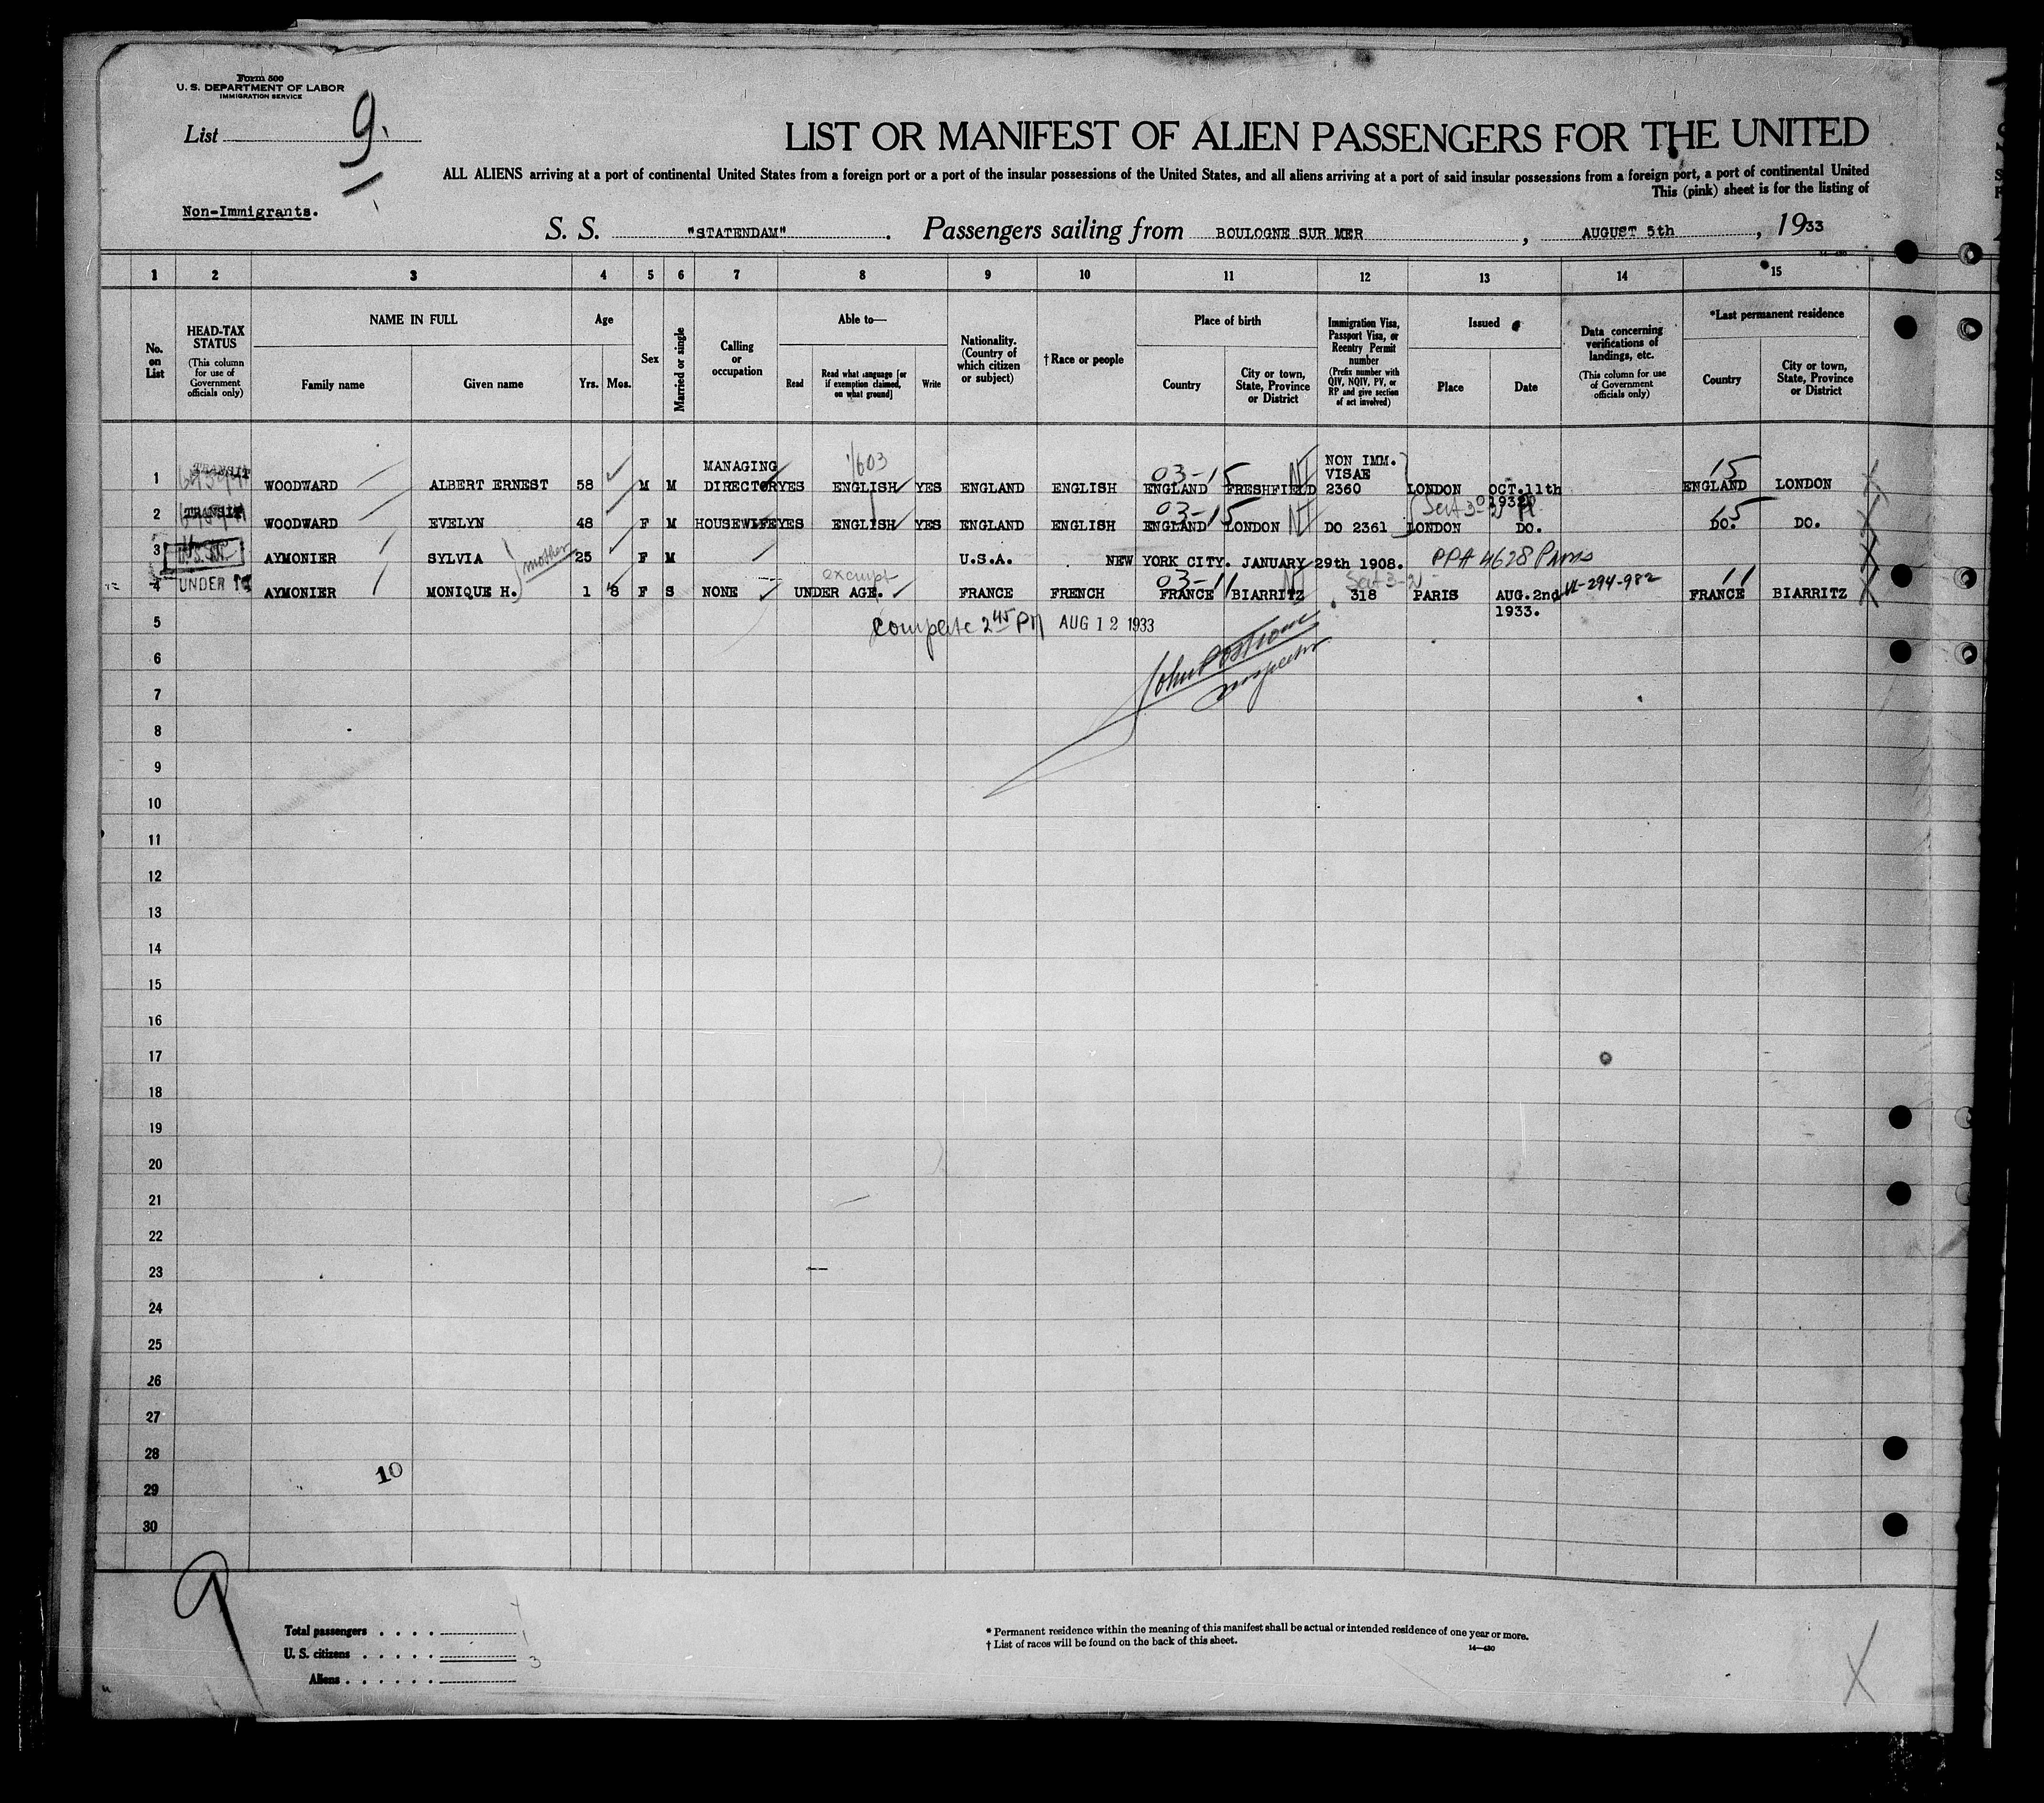 Form 500
U. S. DEPARTMENT OF LABOR
IMMIGRATION SERVICE
List 9.
LIST OR MANIFEST OF ALIEN PASSENGERS FOR THE UNITED
ALL ALIENS arriving at a port of continental United States from a foreign port or a port of the insular possessions of the United States, and all aliens arriving at a port of said insular possessions from a foreign port, a port of continental United
This (pink) sheet is for the listing of
Non-Immigrants.
S. S. "STATENDAM". Passengers sailing from BOULOGNE SUR MER, AUGUST 5th, 1933
1 2 3 4 5 6 7 8 9 10 11 12 13 14 15
No. on List
HEAD-TAX STATUS
(This column for use of Government officials only)
NAME IN FULL
Family name
Given name
Age
Yrs. Mos.
Sex
Married or single
Calling or occupation
Able to—
Read
Read what language [or if exemption claimed, on what ground]
Write
Nationality. (Country of which citizen or subject)
† Race or people
Place of birth
Country
City or town, State, Province or District
Immigration Visa, Passport Visa, or Reentry Permit number
(Prefix number with QIV, NQIV, PV, or RP and give section of act involved)
Issued
Place
Date
Data concerning verifications of landings, etc.
(This column for use of Government officials only)
*Last permanent residence
Country
City or town, State, Province or District
1 TRANSIT WOODWARD ALBERT ERNEST 58 M M MANAGING DIRECTOR YES ENGLISH YES ENGLAND ENGLISH ENGLAND FRESHFIELD NON IMM. VISAE 2360 LONDON OCT.11th 1932 ENGLAND LONDON
1603
03-15
15
2 TRANSIT WOODWARD EVELYN 48 F M HOUSEWIFE YES ENGLISH YES ENGLAND ENGLISH ENGLAND LONDON DO 2361 LONDON DO. DO. DO.
03-15
15
3 AYMONIER SYLVIA 25 F M U.S.A. NEW YORK CITY. JANUARY 29th 1908. PPA 4628 Paris
mother
4 UNDER 16 AYMONIER MONIQUE H. 1 8 F S NONE UNDER AGE. FRANCE FRENCH FRANCE BIARRITZ 318 PARIS AUG.2nd 1933. VI-294-982 FRANCE BIARRITZ
exempt
03-11
Sect 3-2
11
Complete 2 45 PM AUG 12 1933
Inspector
5
6
7
8
9
10
11
12
13
14
15
16
17
18
19
20
21
22
23
24
25
26
27
28
10
29
30
9
Total passengers . . . .
U. S. citizens . . . . . 3
Aliens . . . . . .
* Permanent residence within the meaning of this manifest shall be actual or intended residence of one year or more.
† List of races will be found on the back of this sheet.
14—430
X